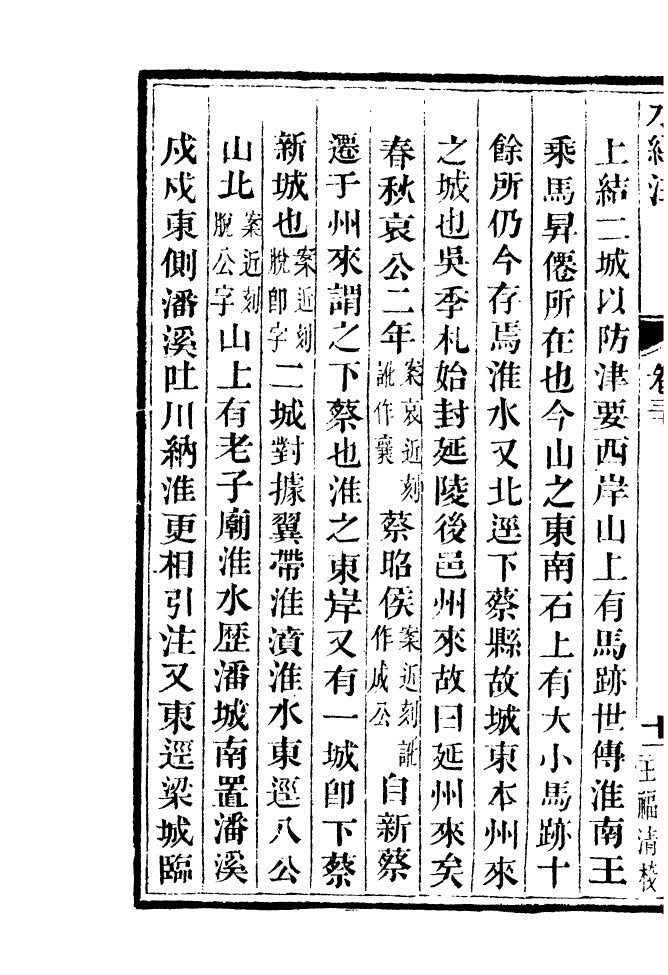 水經注 卷三 十一 王福清校
上結二城以防津要西岸山上有馬跡世傳淮南王
乘馬昇僊所在也今山之東南石上有大小馬跡十
餘所仍今存焉淮水又北逕下蔡縣故城東本州來
之城也吳季札始封延陵後邑州來故曰延州來矣
春秋哀公二年案哀近刻訛作襄蔡昭侯案近刻訛作成公自新蔡
遷于州來謂之下蔡也淮之東岸又有一城卽下蔡
新城也案近刻脫卽字二城對據翼帶淮濆淮水東逕八公
山北案近刻脫公字山上有老子廟淮水歷潘城南置潘溪
戍戍東側潘溪吐川納淮更相引注又東逕梁城臨